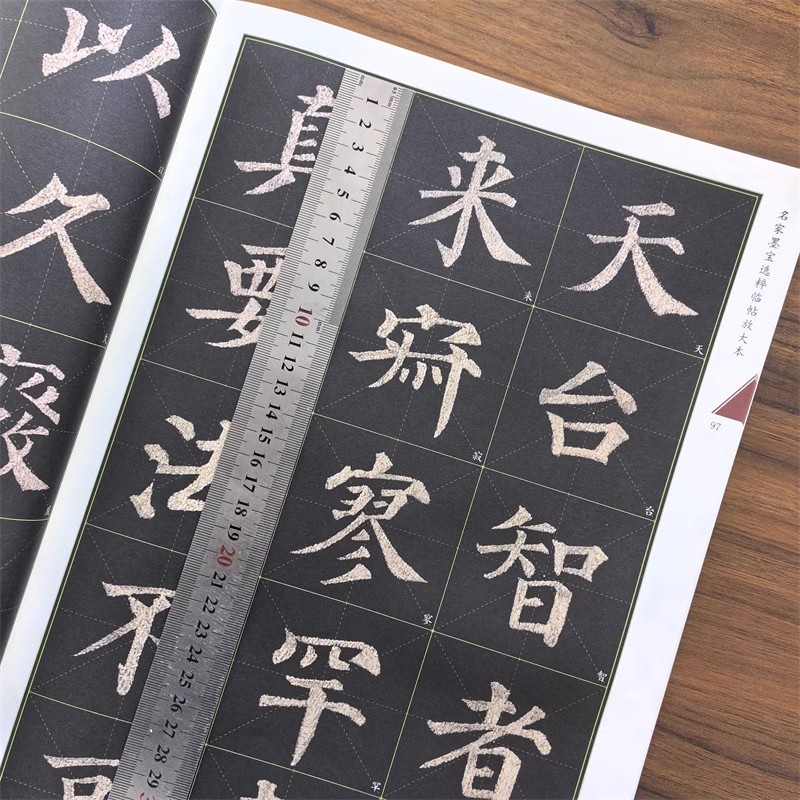 名家墨宝选粹临帖放大本
97
天台智者
天
台
智
来寂寥罕
来
寂
寥
罕
真要法不
1 2 3 4 5 6 7 8 9 10 11 12 13 14 15 16 17 18 19 20 21 22 23 24 25 26 27 28 29
以久